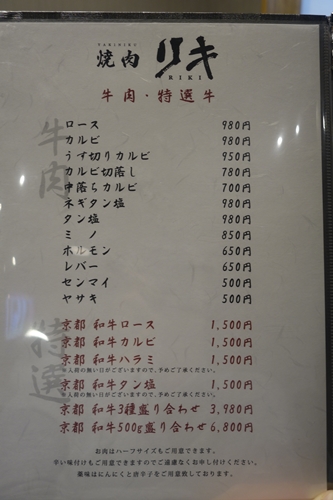 YAKINIKU
焼肉 リキ
RIKI
牛肉・特選牛
牛肉
ロース 980円
カルビ 980円
うす切りカルビ 950円
カルビ切落し 780円
中落ちカルビ 700円
ネギタン塩 980円
タン塩 980円
ミノ 850円
ホルモン 650円
レバー 650円
センマイ 500円
ヤサキ 500円
特選
京都 和牛ロース 1,500円
京都 和牛カルビ 1,500円
京都 和牛ハラミ 1,500円
※入荷の無い日がございますので、予めご了承ください。
京都 和牛タン塩 1,500円
※入荷の無い日がございますので、予めご了承ください。
京都 和牛3種盛り合わせ 3,980円
京都 和牛500g盛り合わせ 6,800円
お肉はハーフサイズもご用意できます。
辛い味付けもご用意できますのでご遠慮なくお申し付けください。
薬味はにんにくと唐辛子をご用意致しております。